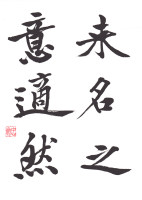 未名之
意適然